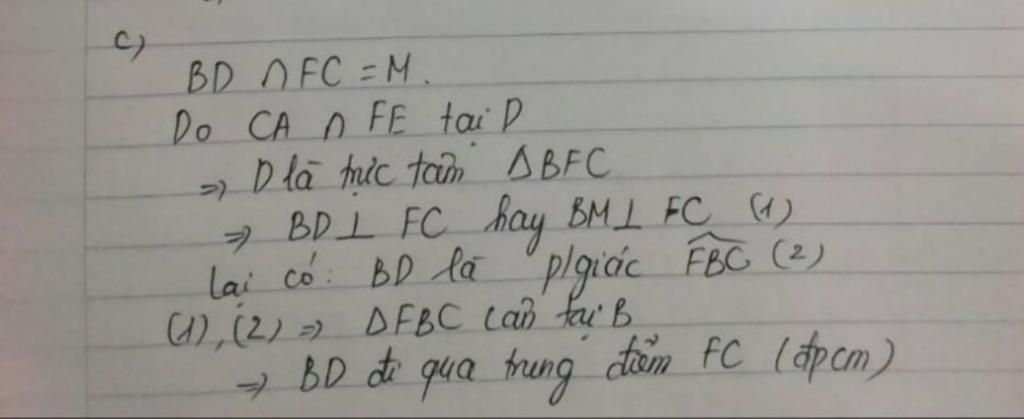 c)
BD ∩ FC = M.
Do CA ∩ FE tại D
=> D là trực tâm ΔBFC
=> BD ⊥ FC hay BM ⊥ FC (1)
lại có: BD là p/giác \widehat{FBC} (2)
(1), (2) => ΔFBC cân tại B
=> BD đi qua trung điểm FC (đpcm)